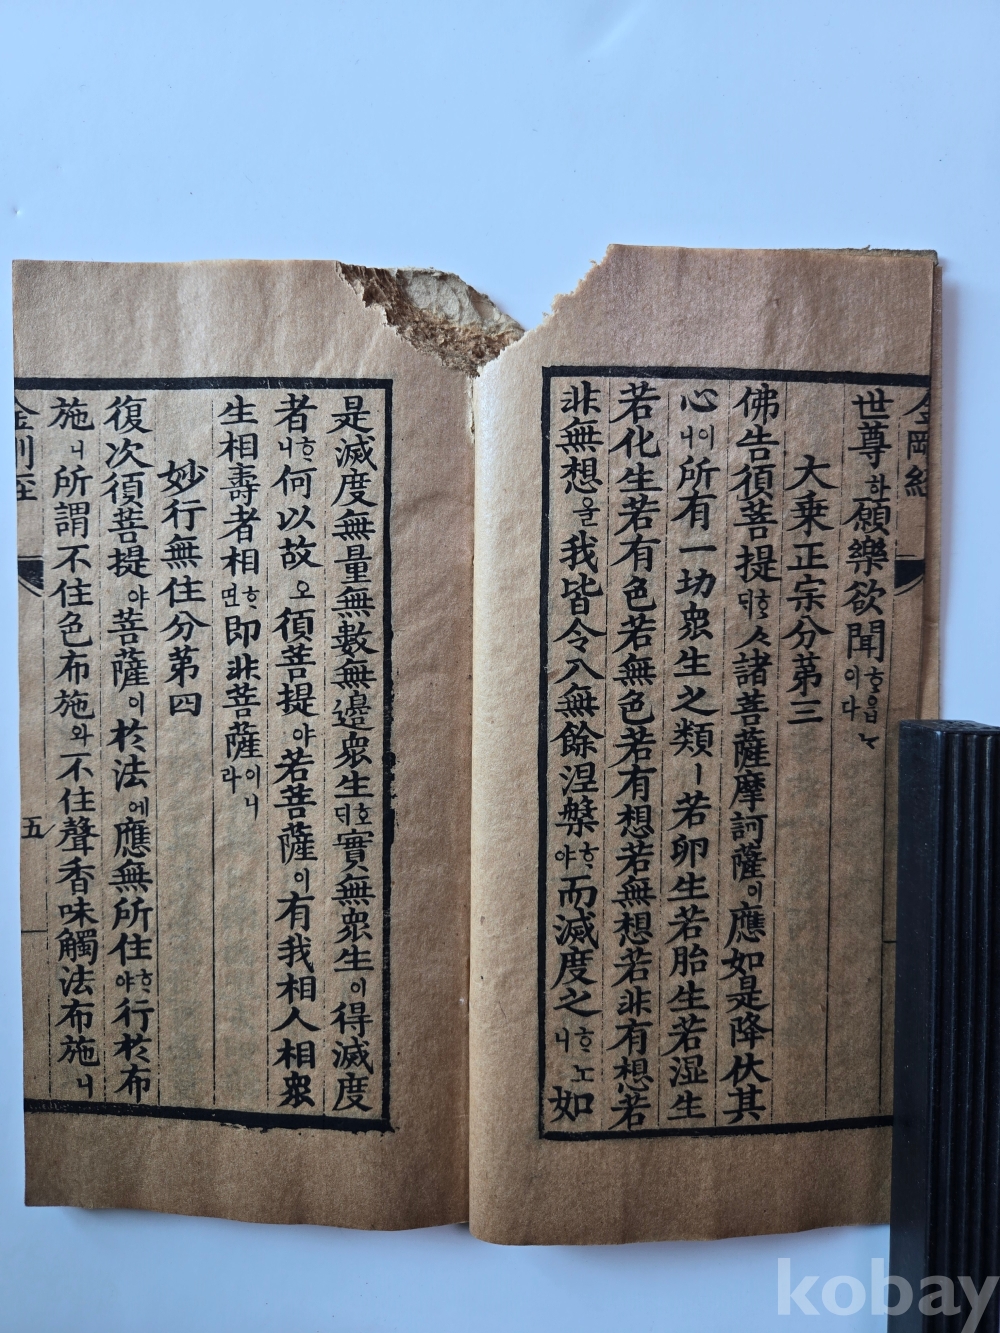 金岡經
世尊하願樂欲聞ᄒᆞᅀᆞᆸ노이다
大乗正宗分苐三
佛告須菩提ᄒᆞ샤ᄃᆡ諸菩薩摩訶薩이應如是降伏其
心이니所有一切衆生之類ㅣ若卵生若胎生若湿生
若化生若有色若無色若有想若無想若非有想若
非無想을我皆令入無餘涅槃ᄒᆞ야而滅度之ᄒᆞ노니如
是滅度無量無數無邊衆生호ᄃᆡ實無衆生이得滅度
者ᄒᆞ니何以故오須菩提야若菩薩이有我相人相衆
生相壽者相ᄒᆞ면即非菩薩이니라
妙行無住分苐四
復次須菩提야菩薩이於法에應無所住ᄒᆞ야行於布
施니所謂不住色布施와不住聲香味觸法布施니
五